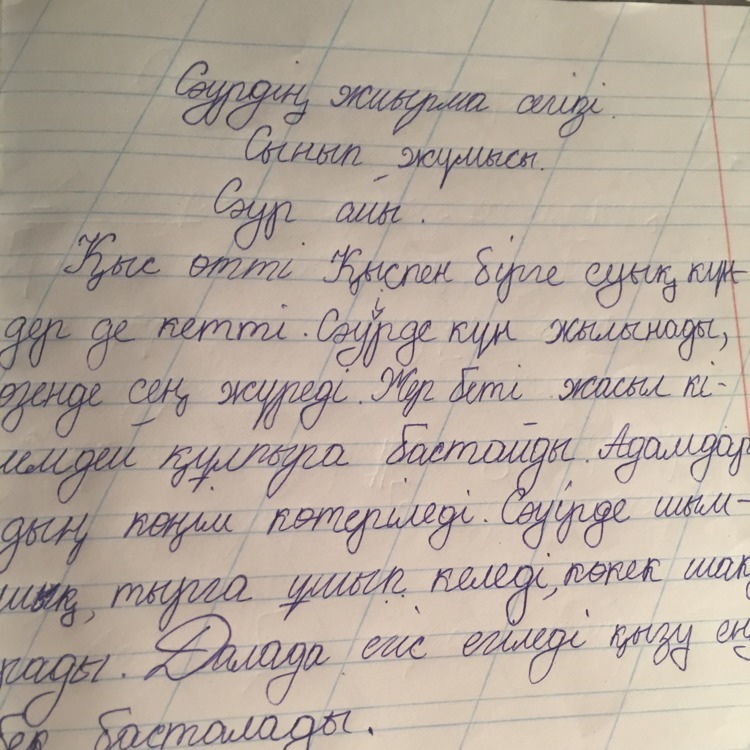 Сәурдің жиырма сегізі.
Сынып жұмысы.
Сәур айы.
Қыс өтті Қыспен бірге суық күн-
дер де кетті. Сәуірде күн жылынады,
өзенде сең жүреді. Жер беті жасыл кі-
лемдей құлпыра бастайды. Адамдар-
дың көңім көтеріледі. Сәуірде шым-
шық, тырга ұшып келеді, көкек шақ
рады. Далада егіс егіледі қызу ең
бек басталады.